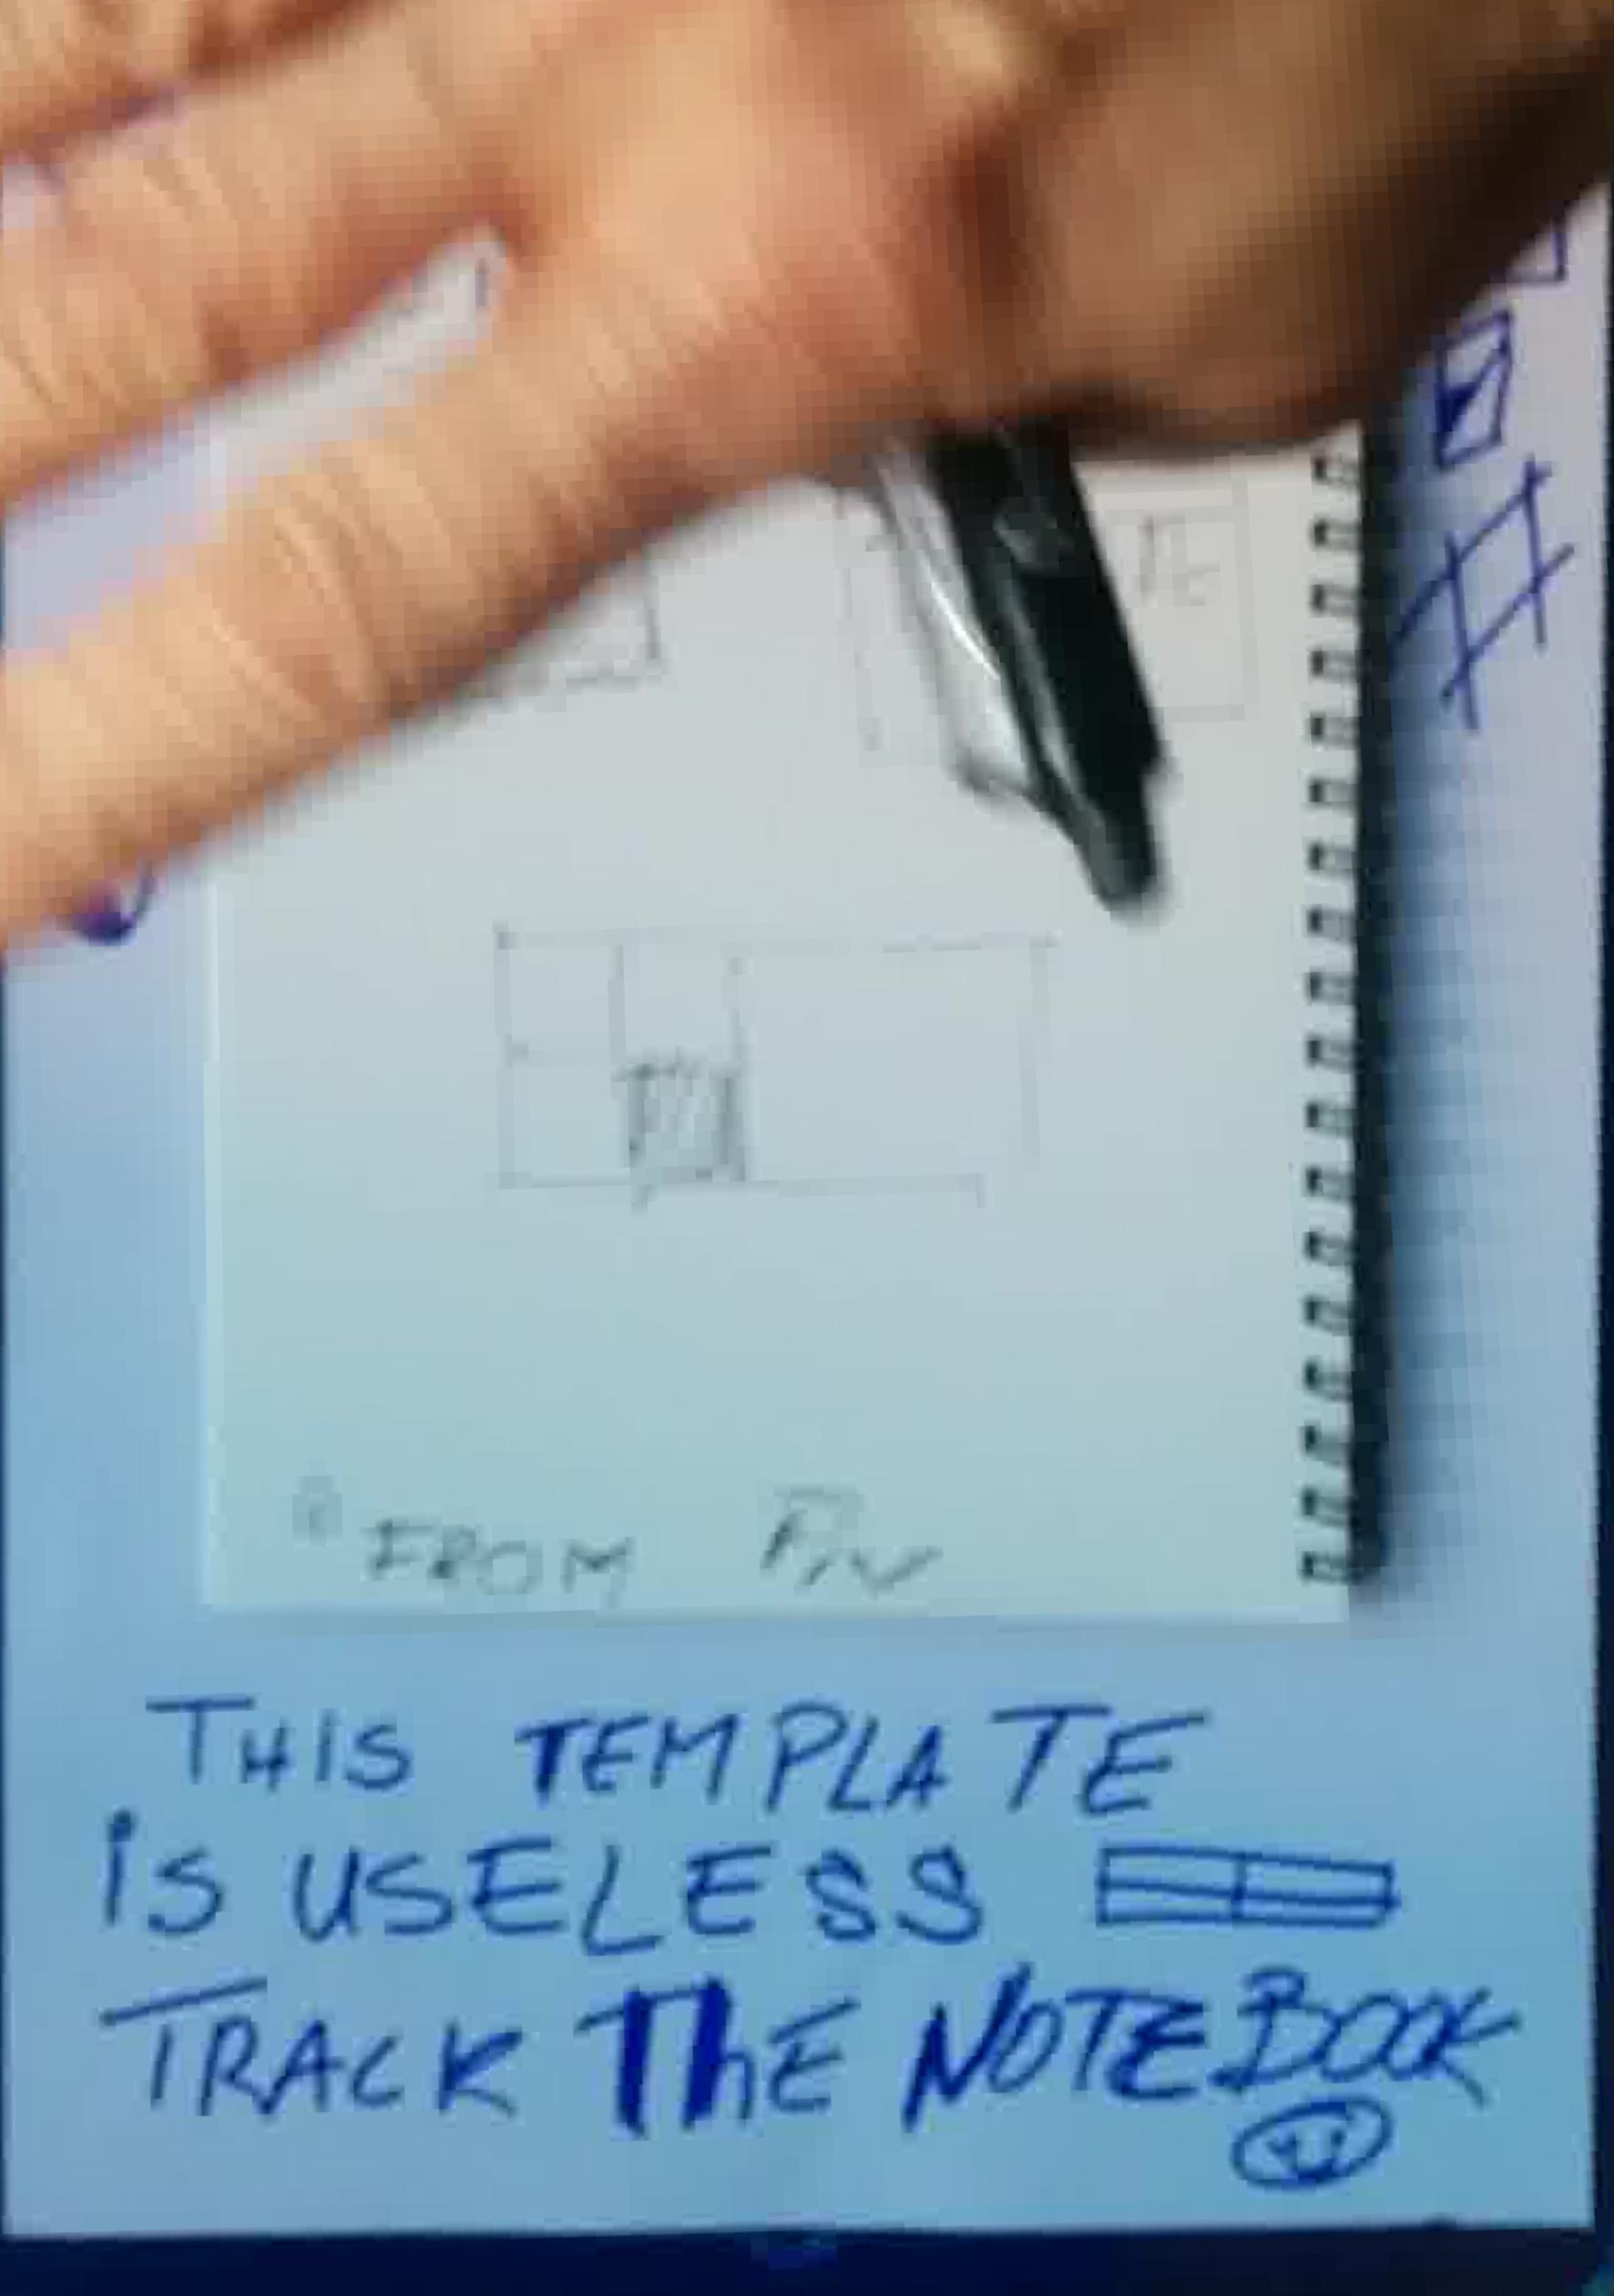 FROM PIN
THIS TEMPLATE
is USELESS
TRACK ThE NOTEBOOK